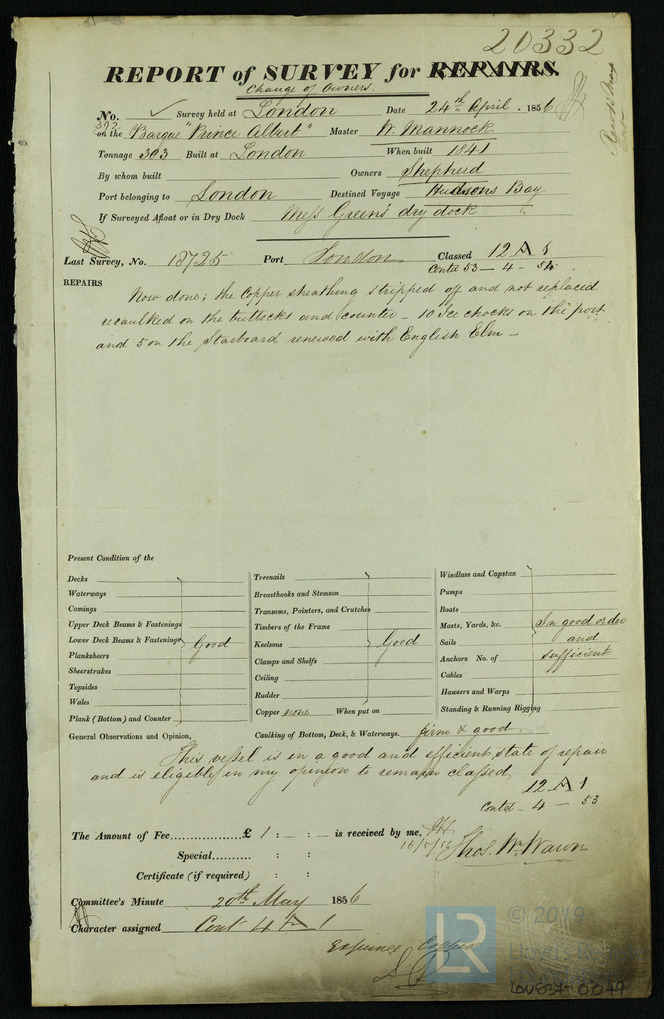 20332
REPORT of SURVEY for REPAIRS.
Change of Owners.
No. Survey held at London Date 24th April. 1856
392
on the Barque "Prince Albert" Master W. Mannock
Tonnage 393 Built at London When built 1841
By whom built Owners Shepherd
Port belonging to London Destined Voyage Hudsons Bay
If Surveyed Afloat or in Dry Dock Mess Greens dry dock
Last Survey, No. 18725 Port London Classed 12 A 1
Contd 53 - 4 - 54
REPAIRS
Now done; the copper sheathing stripped off and not replaced
recaulked on the buttocks and counter - 10 Ice chocks on the port
and 5 on the Starboard renewed with English Elm -
Present Condition of the
Decks
Waterways
Comings
Upper Deck Beams & Fastenings
Lower Deck Beams & Fastenings Good
Planksheers
Sheerstrakes
Topsides
Wales
Plank (Bottom) and Counter
Treenails
Breasthooks and Stemson
Transoms, Pointers, and Crutches
Timbers of the Frame
Keelsons Good
Clamps and Shelfs
Ceiling
Rudder
Copper none When put on
Windlass and Capstan
Pumps
Boats
Masts, Yards, &c. In good order
Sails and
Anchors No. of sufficient
Cables
Hawsers and Warps
Standing & Running Rigging
General Observations and Opinion, Caulking of Bottom, Deck, & Waterways. firm & good
This vessel is in a good and efficient state of repair
and is eligible in my opinion to remain classed
12 A 1
Contd - 4 - 53
The Amount of Fee.................£ 1 : - : - is received by me,
Special.......... : :
Certificate (if required) : :
Thos. Wm Wawn
Committee's Minute 20th May 1856
Character assigned Cont 4 A 1
Expunge Copper
LR
© 2019
Lloyd's Register
LON 637-0047